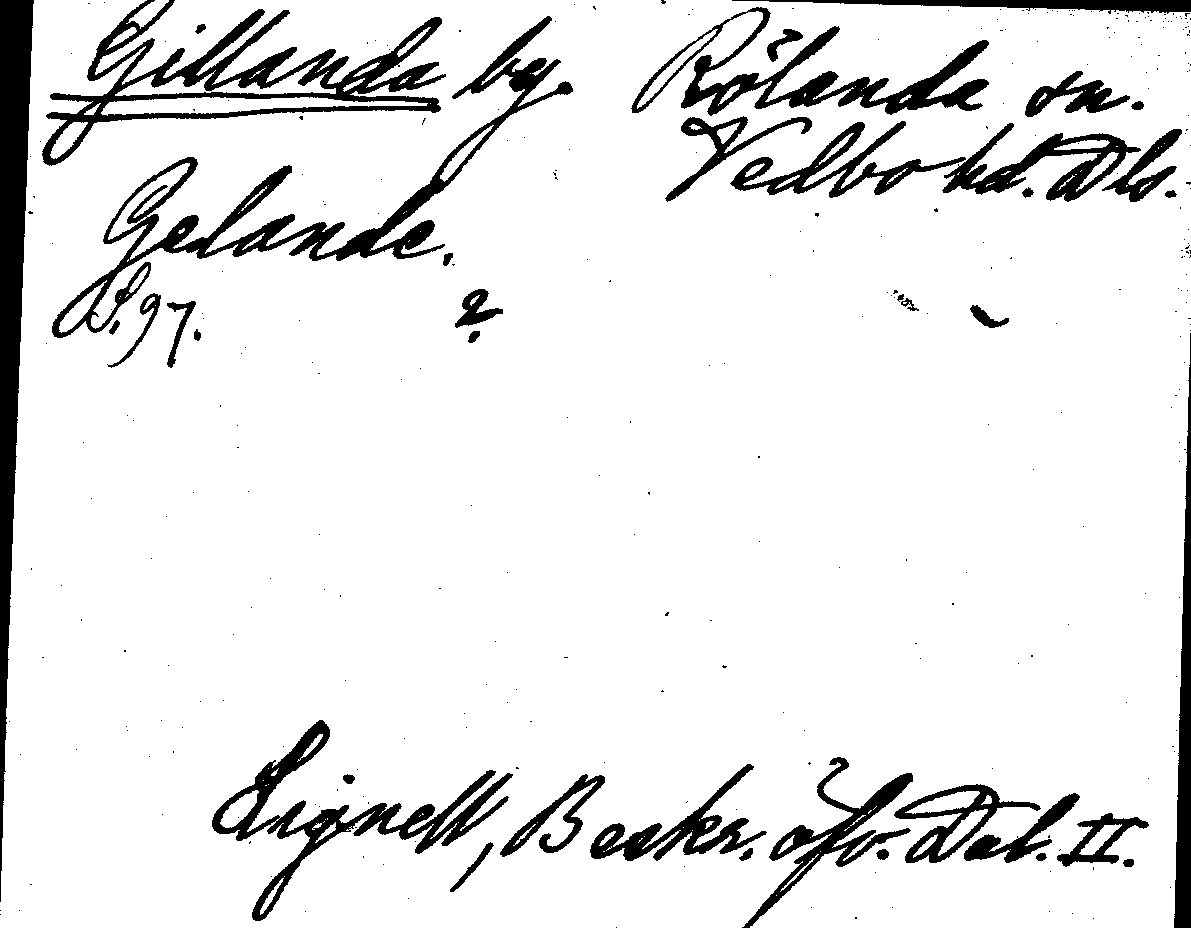 Gillanda by. Rölanda sn.
Vedbo hd. Dls.
Gelande.
S. 97. ?
Lignell, Beskr. öfv. Dal. II.